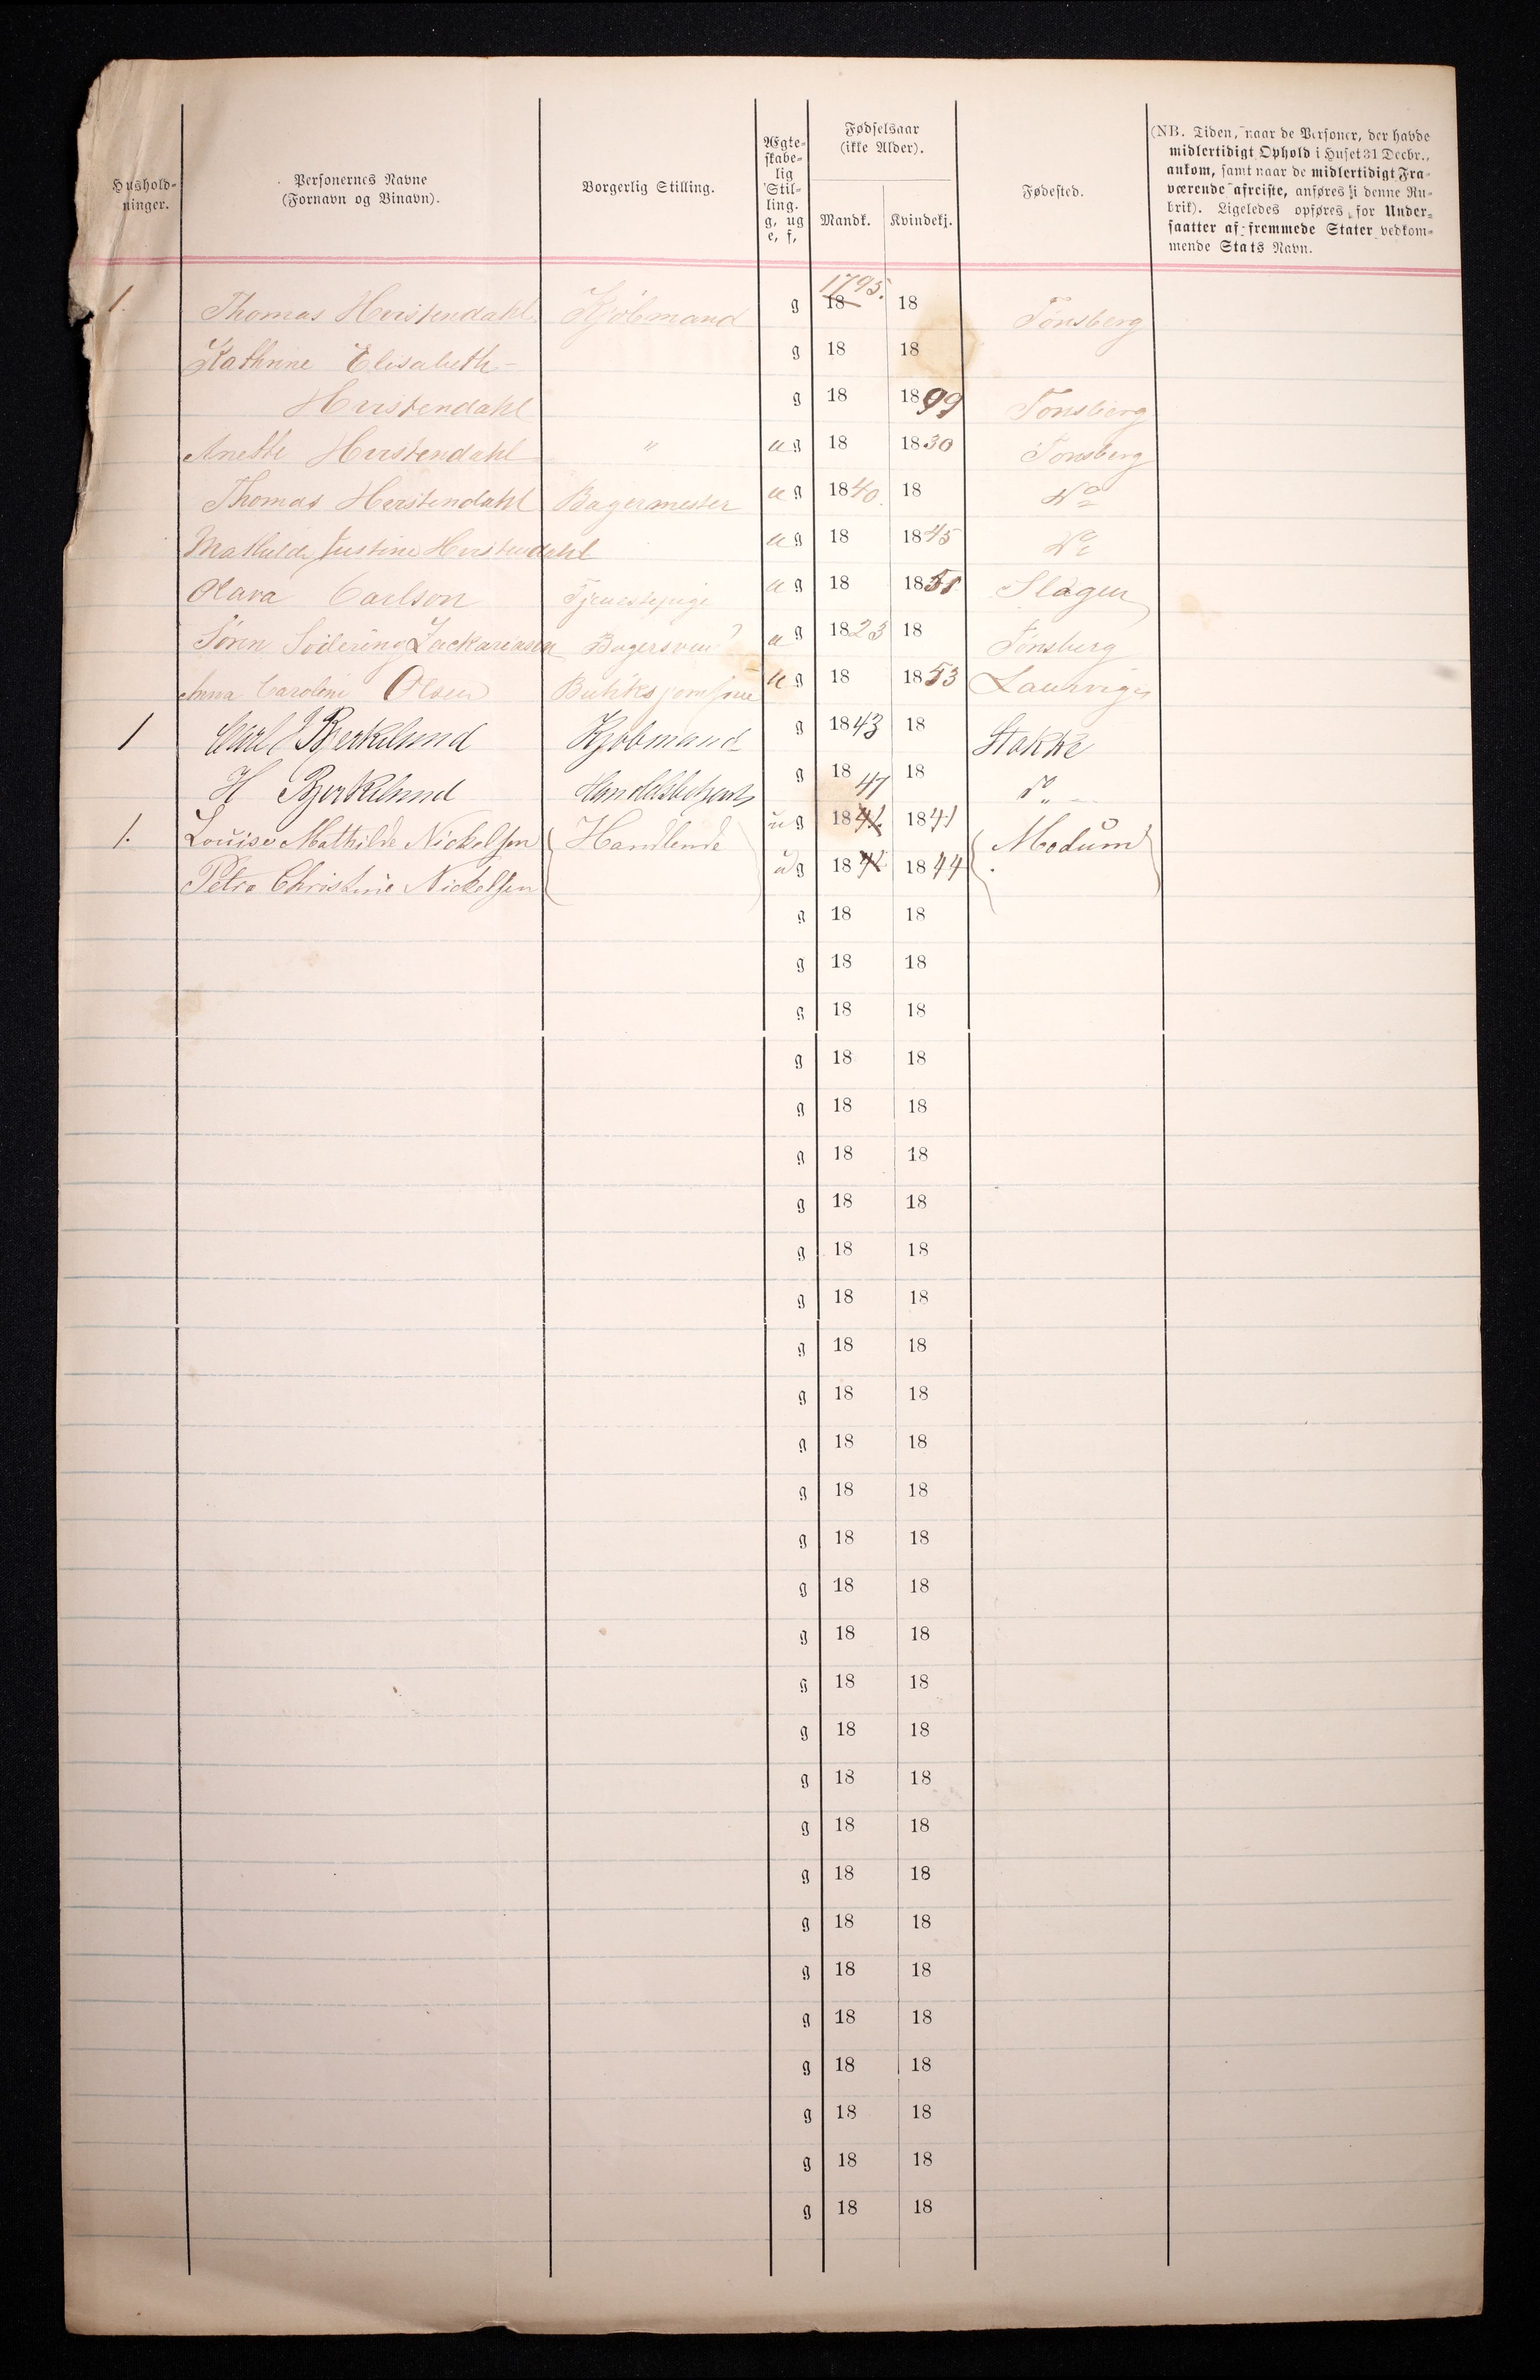 Hushold-
ninger.
Personernes Navne
(Fornavn og Binavn).
Borgerlig Stilling.
Ægte-
skabe-
lig
Stil-
ling.
g, ug
e, f,
Fødselsaar
(ikke Alder).
Mandk.
Kvindekj.
Fødested.
(NB. Tiden, naar de Personer, der havde
midlertidigt Ophold i Huset 31 Decbr.,
ankom, samt naar de midlertidigt Fra-
værende afreiste, anføres i denne Ru-
brik). Ligeledes opføres for Under-
saatter af fremmede Stater vedkom-
mende Stats Navn.
1. Thomas Herstendahl Kjöbmand g 1795. 18 18 Tönsberg
Kathrine Elisabeth- g 18 18
Herstendahl g 18 1899 Tonsberg
Anette Herstendahl " ug 18 1830 Tonsberg
Thomas Herstendahl Bagermester ug 1840. 18 Do
Mathilde Justine Herstendahl ug 18 1845 Do
Olava Carlson Tjenestepige ug 18 1851 Slagen
Sören Zackariasen Bagersvend ug 1823 18 Tönsberg
Anna Caroline Olsen Butiksjomfrue ug 18 1853 Laurvigen
1 Carl J Bjerkelund Kjöbmand g 1843 18 Stokke
H Bjerkelund g 1847 18 do
1. Louise Mathilde Nickelsen Handlende ug 1841 1841 Modum
Petra Christine Nickelsen ug 1844 1844
g 18 18
g 18 18
g 18 18
g 18 18
g 18 18
g 18 18
g 18 18
g 18 18
g 18 18
g 18 18
g 18 18
g 18 18
g 18 18
g 18 18
g 18 18
g 18 18
g 18 18
g 18 18
g 18 18
g 18 18
g 18 18
g 18 18
g 18 18
g 18 18
g 18 18
g 18 18
g 18 18
g 18 18